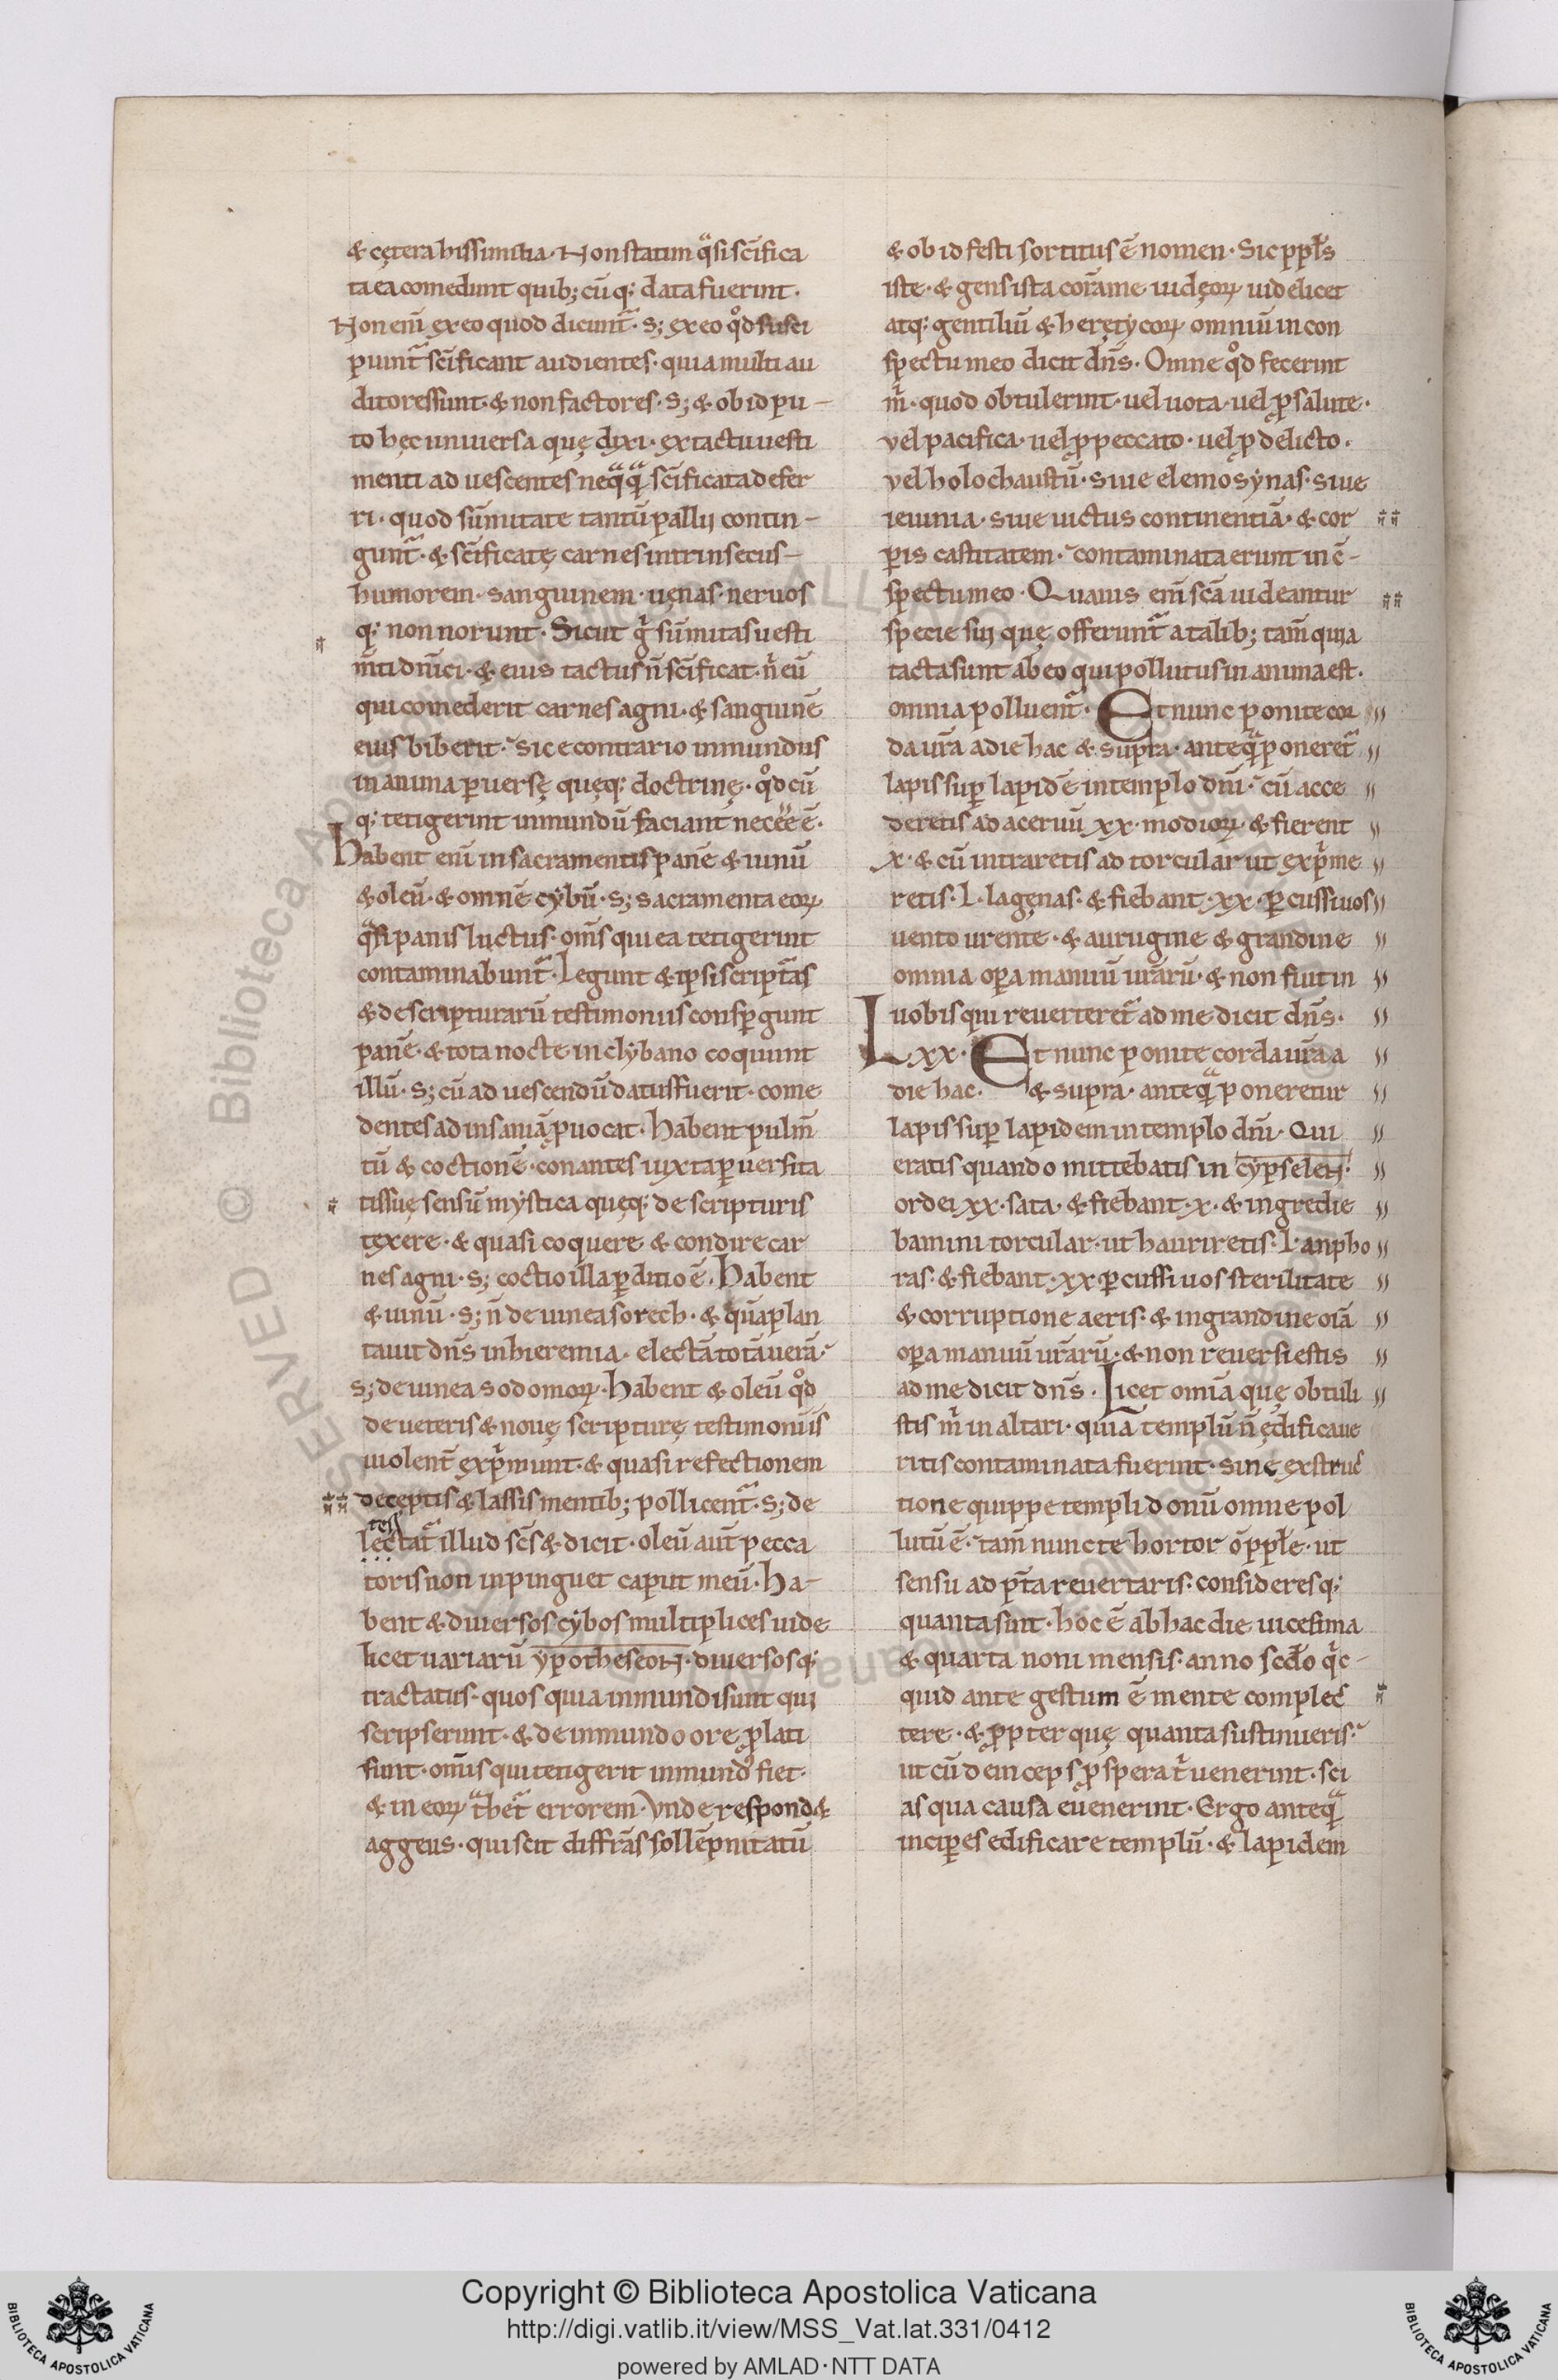 & cętera his similia. Non statim q̃si sc̄ifica
ta ea comedunt quib; cūq; data fuerint.
Non eni ̄ ex eo quod dicunt̃. s; ex eo q̊d susci
piunt̃ sc̄ificant audientes. quia multi au
ditores sunt. & non factores. s; & ob id pu-
to hęc uniuersa quę dixi. ex tactu uesti
menti ad uescentes neq̃q̃ sc̄ificata defer
ri. quod sūmitate tantū pallii contin-
gunt̃. & sc̄ificatę carnes intrinsecus-
humorem. sanguinem. uęnas. neruos
q; non norunt. Sicut g̊ sūmitas uesti
m̄ti dn̄ici. & eius tactus n̄ sc̄ificat. n̊ eū
qui comederit carnes agni. & sanguinē
eius biberit. sic econtrario inmundus
in anima ꝑuersę quęq; doctrinę. q̊dcū
q; tetigerint inmundū faciant necēē ē.
Habent eni ̄ in sacramentis panē & uinū
& oleū. & omnē cybū. s; sacramenta eoꝝ
q̃si panis luctus. om̄s qui ea tetigerint
contaminabunt̃. Legunt & ipsi script̃as
& de scripturarū testimoniis conspergunt
panē. & tota nocte in clybano coquunt
illū. s; cū ad uescendū datus fuerit. come
dentes ad insaniā ꝓuocat. Habent pulm̄
tū & coctionē. conantes iuxta ꝑuersita
tis suę sensū mystica quęq; de scripturis
texere. & quasi coquere & condire car
nes agni. s; coctio illa ꝑditio ē. Habent
& uinū. s; n̄ de uinea sorech. & quā plan
tauit dn̄s in hieremia. electā totā uerā.
s; de uinea sodomoꝝ. Habent & oleū q̊d
de ueteris & nouę scripturę testimoniis
uiolent̄ exp̊munt. & quasi refectionem
deceptis & lassis mentib; pollicent̃. s; de
tes
lectat̃ illud sc̄s & dicit. oleū aut̄ pecca
toris non inpinguet caput meū. Ha-
bent & diuersos cybos multiplices uide
licet uariarū ypotheseoN. diuersosq;
tractatus. quos quia inmundi sunt qui
scripserunt. & de inmundo ore ꝓlati
sunt. omīs qui tetigerit inmundꝰ fiet.
& in eoꝝ t̃het̃ errorem. Vnde respond&
aggeus. qui scit diffr̄as sollēpnitatū
& ob id festi sortitus ē nomen. Sic ppl̄s
iste. & gens ista corā me iudęoꝝ uidelicet
atq; gentiliū & heręticoꝝ omniū in con
spectu meo dicit dn̄s. Omne q̊d fecerint
m̊. quod obtulerint. uel uota. uel ꝓ salute.
vel pacifica. uel ꝓ peccato. uel ꝓ delicto.
vel holochaustū. siue elemosynas. siue
ieiunia. siue uictus continentiā. & cor
ꝑis castitatem. contaminata erunt in c̄-
spectu meo. Quāuis em̄ sc̄a uideantur
specie sui quę offerunt̃ a talib; tam̄ quia
tacta sunt ab eo qui pollutus in anima est.
omnia polluent̃. Et nunc ponite cor
da ur̄a a die hac & supra. anteq̃ poneret̃
lapis suꝑ lapidē in templo dn̄i. cū acce
deretis ad aceruū xx. modioꝝ. & fierent
x. & cū intraretis ad torcular ut exp̊me
retis. L. lagenas. & fiebant. xx. ꝑcussi uos
uento urente. & aurugine & grandine
omnia oꝑa manuū ur̄arū. & non fuit in
uobis qui reuerteret̃ ad me dicit dn̄s.
Lxx. Et nunc ponite corda ur̄a a
die hac. & supra. anteq̃ poneretur
lapis suꝑ lapidem in templo dn̄i. Qui
eratis quando mittebatis in cypseleN.
ordei xx. sata. & fiebant. x. & ingredie
bamini torcular. ut hauriretis. L. anpho
ras. & fiebant. xx ꝑcussi uos sterilitate
& corruptione aeris. & in grandine oiā
oꝑa manuū ur̄arū. & non reuersi estis
ad me dicit dn̄s. Licet omīa quę obtuli
stis m̊ in altari. quia templū n̄ ędificaue
ritis contaminata fuerint. sine exstruc̄
tione quippe templi donū omne pol
lutū ē. tam̄ nunc te hortor o pple. ut
sensu ad p̃t̃a reuertaris. consideresq;
quanta sint. hoc ē ab hac die uicesima
& quarta noni mensis. anno sc̄do q̊c-
quid ante gestum ē mente complec̄
tere. & ꝓpter quę quanta sustinueris.
ut cū deinceps ꝓspera t̊ uenerint. sci
as qua causa euenerint. Ergo anteq̃
incipes edificare templū. & lapidem
Copyright © Biblioteca Apostolica Vaticana
http://digi.vatlib.it/view/MSS_Vat.lat.331/0412
powered by AMLAD·NTT DATA
BIBLIOTECA APOSTOLICA VATICANA
BIBLIOTECA APOSTOLICA VATICANA